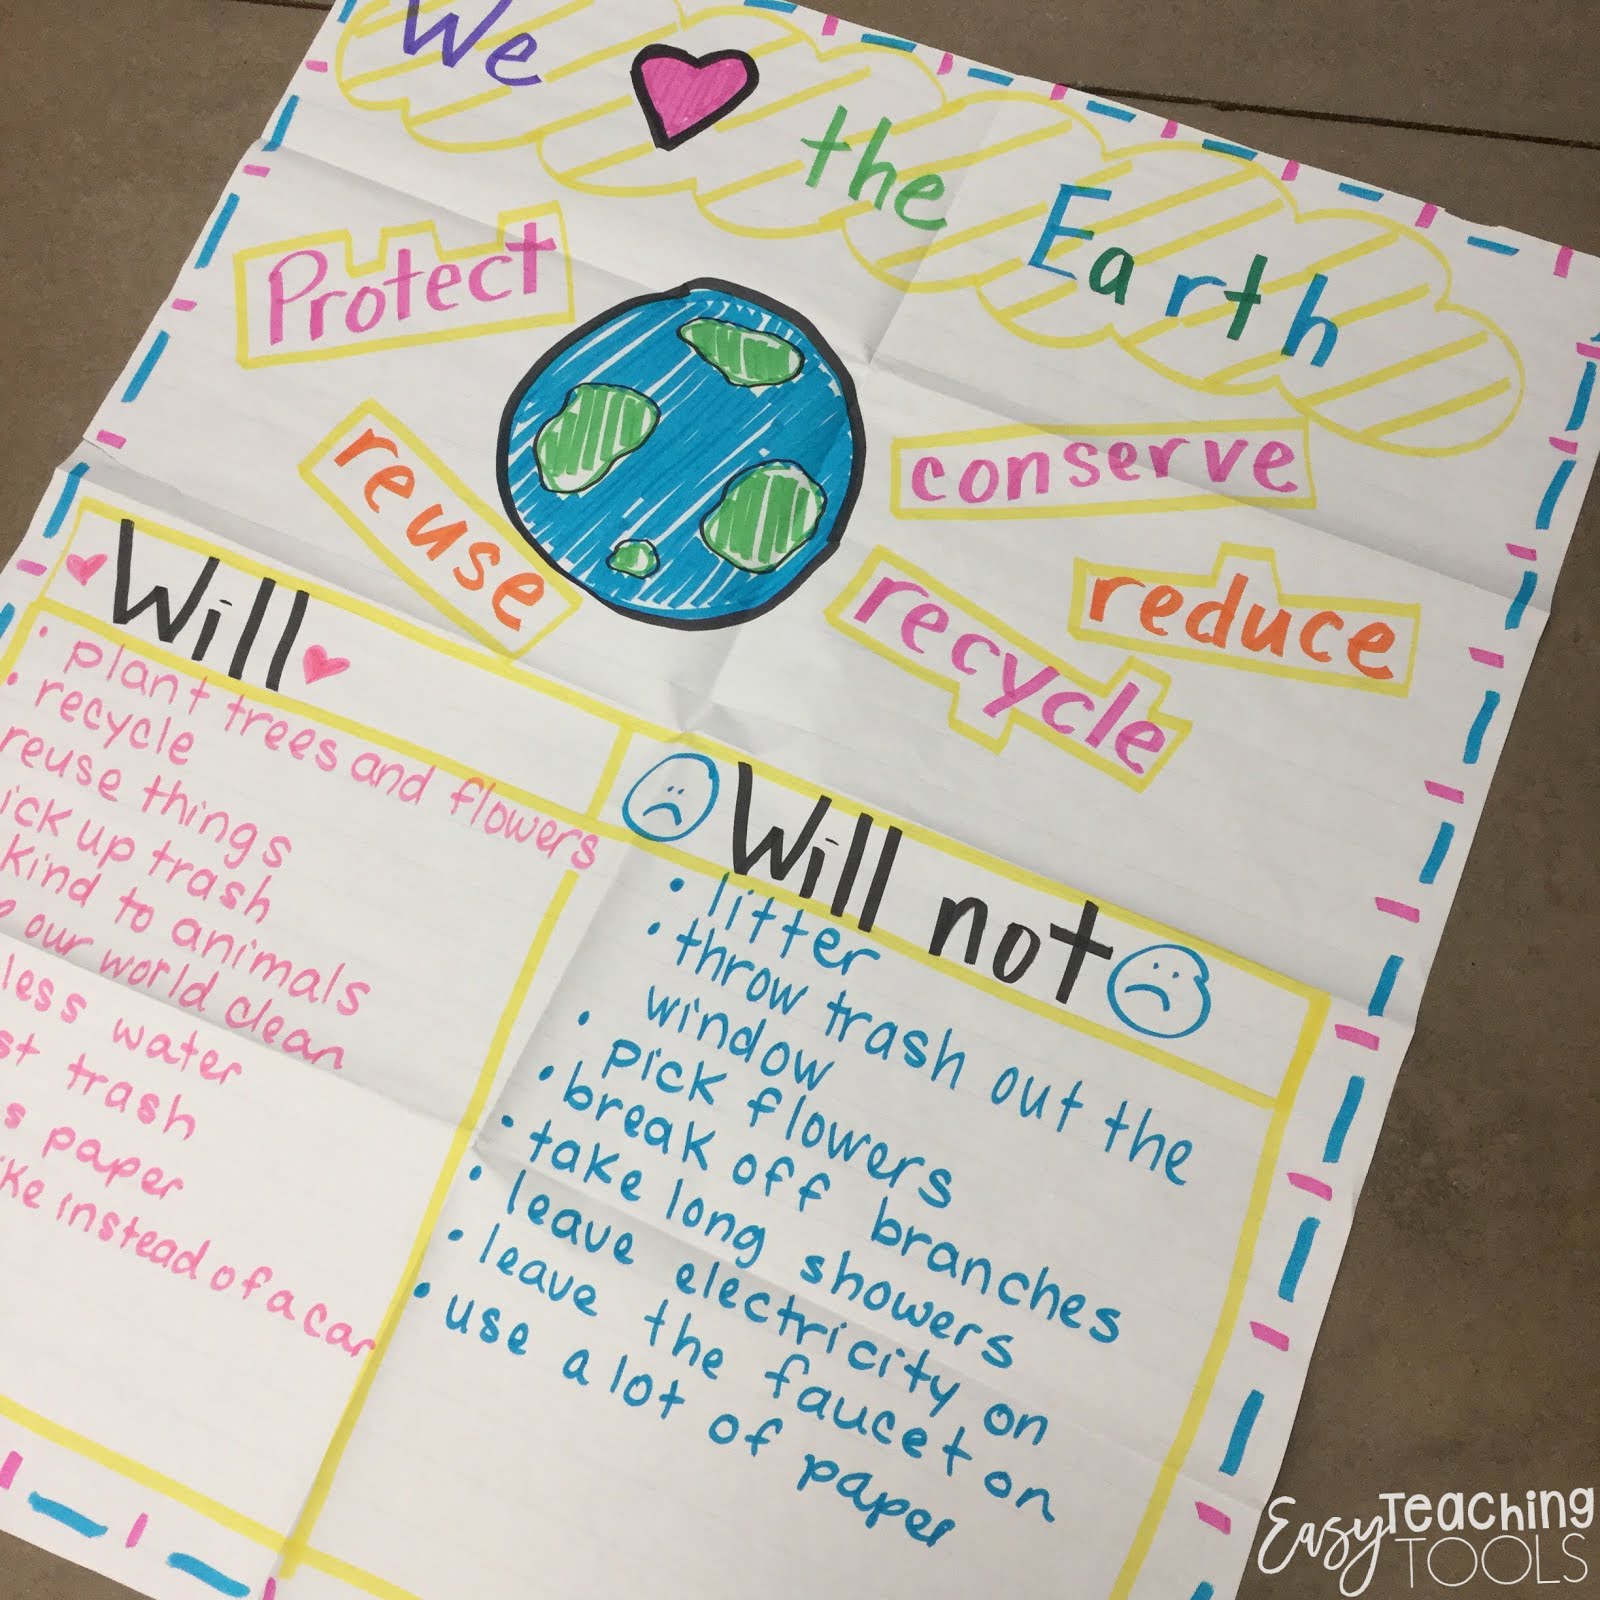 We the Earth
Protect
reuse
conserve
reduce
recycle
Will
• plant trees and flowers
• recycle
reuse things
ick up trash
kind to animals
our world clean
less water
st trash
s paper
ike instead of a car
Will not
• litter
• throw trash out the
window
• pick flowers
• break off branches
• take long showers
• leave electricity on
• leave the faucet on
• use a lot of paper
Easy Teaching
TOOLS